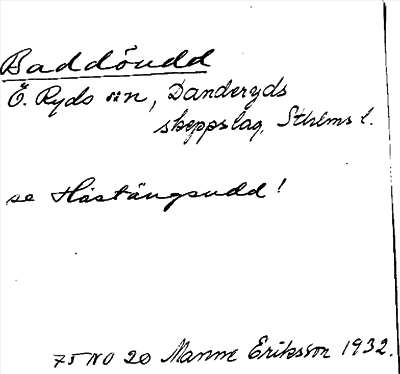 Baddöudd
Ö. Ryds sn, Danderyds
skeppslag, Sthlms l.
se Hästängsudd!
75 NO 20 Manne Eriksson 1932.